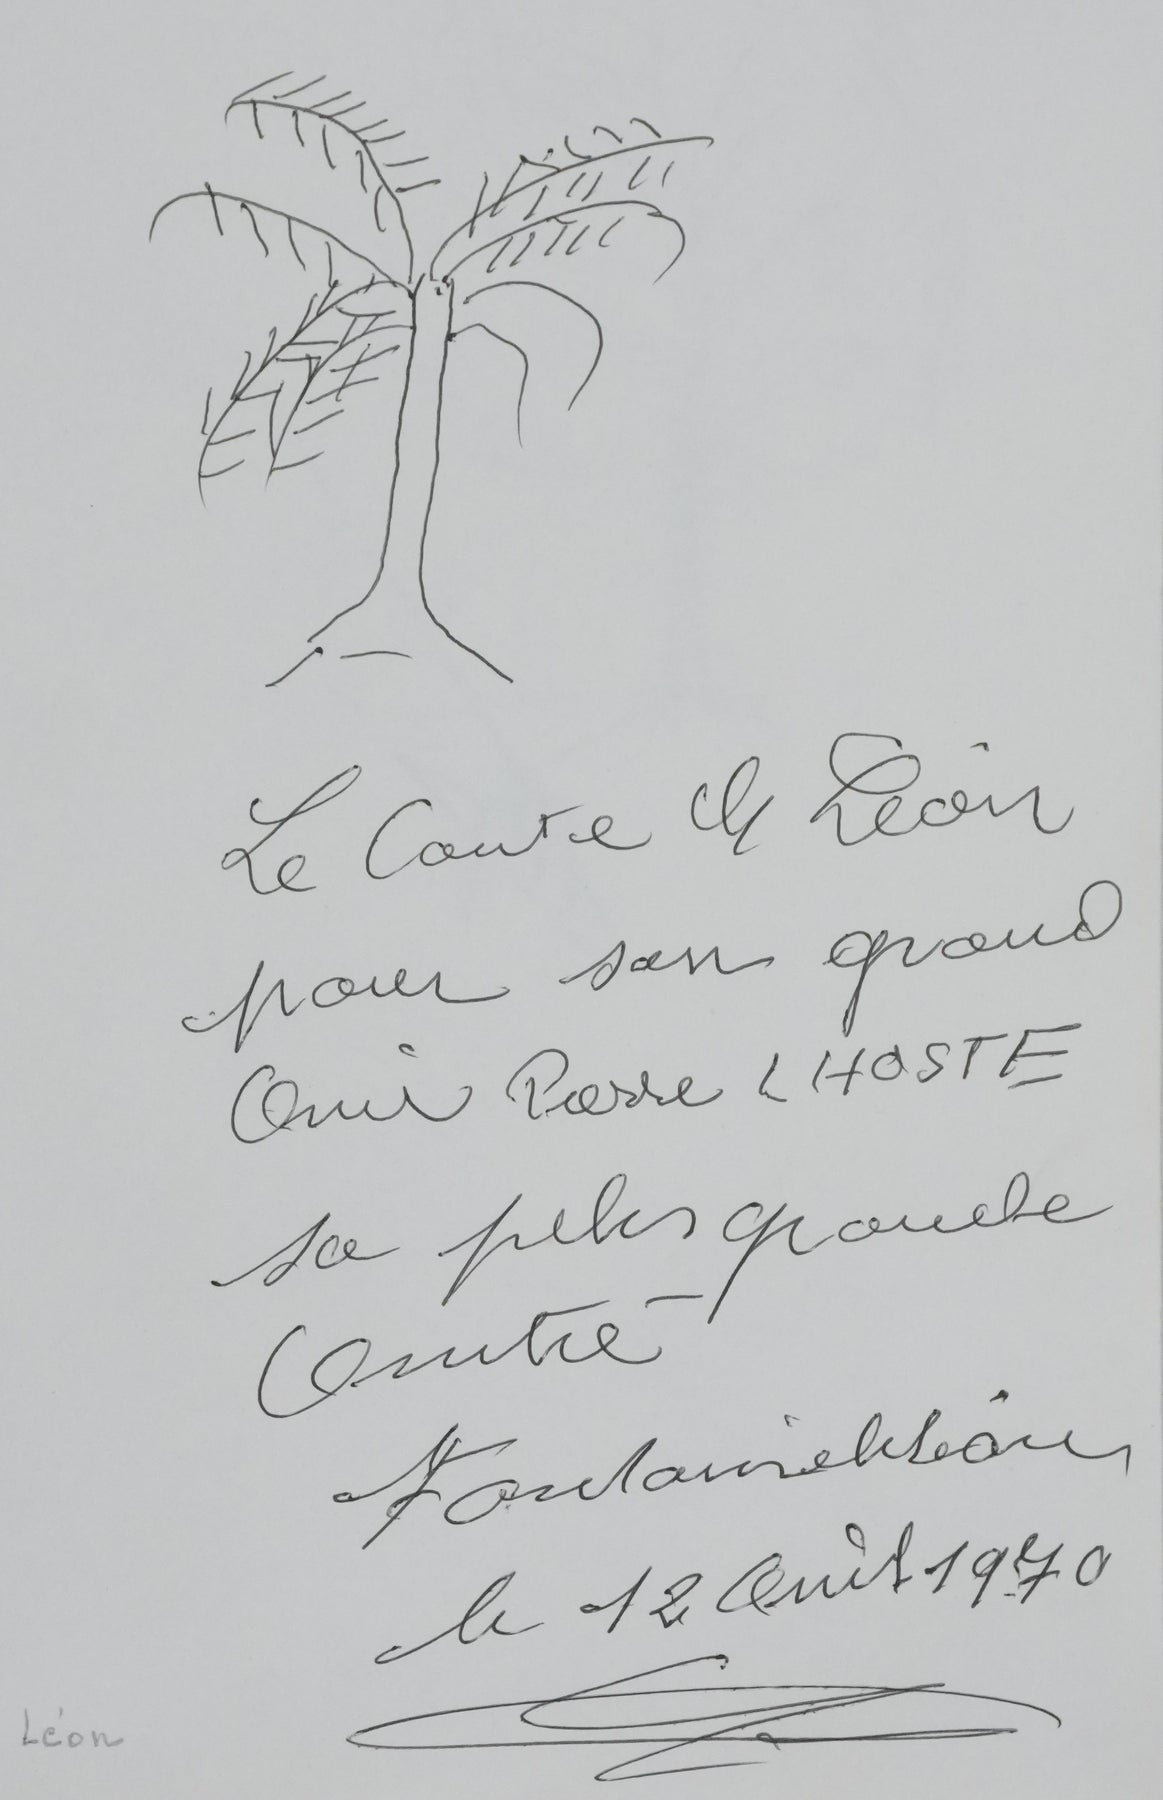 Le Comte Ch Léon
pour son grand
Ami Pierre LHOSTE
sa plus grande
Amitié
Fontainebleau
le 12 Août 1970
Léon